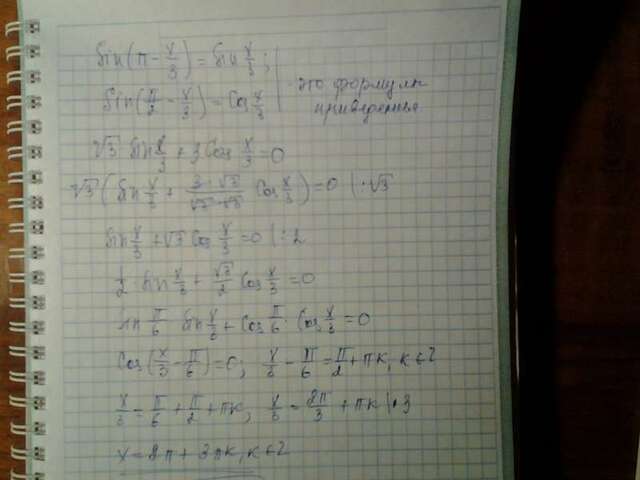 sin(π - x/3) = sin x/3;
sin(π/2 - x/3) = cos x/3
это формулы
приведенья
√3 sin x/3 + 3 cos x/3 = 0
√3 (sin x/3 + 3·√3/√3·√3 cos x/3) = 0 | : √3
sin x/3 + √3 cos x/3 = 0 | : 2
1/2 sin x/3 + √3/2 cos x/3 = 0
sin π/6 · sin x/3 + cos π/6 · cos x/3 = 0
cos(x/3 - π/6) = 0; x/3 - π/6 = π/2 + πk, k ∈ Z
x/3 = π/6 + π/2 + πk, x/3 = 2π/3 + πk | · 3
x = 2π + 3πk, k ∈ Z